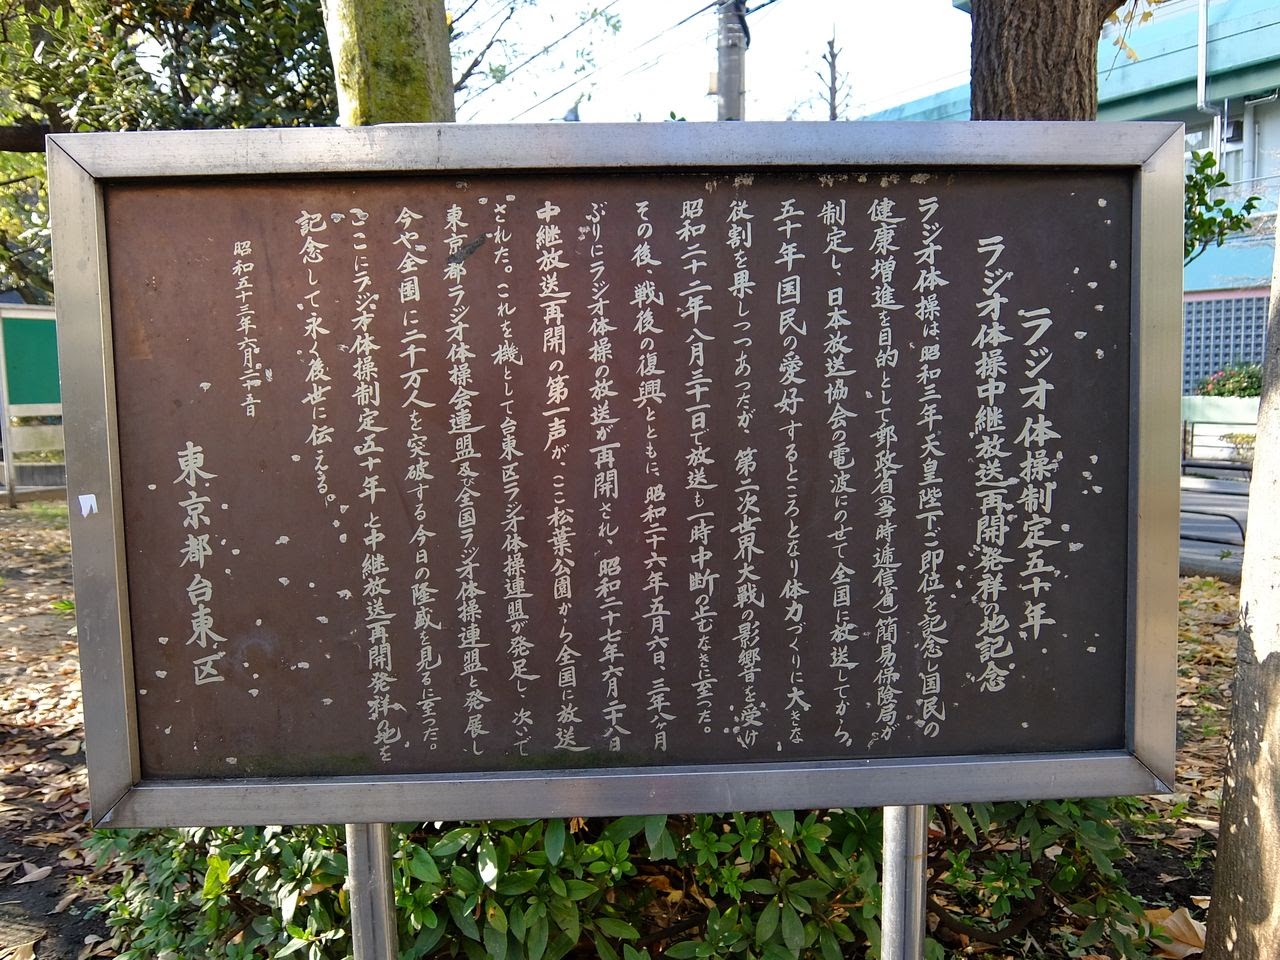 ラジオ体操制定五十年
ラジオ体操中継放送再開発祥の地記念
ラジオ体操は昭和三年天皇陛下ご即位を記念し国民の
健康増進を目的として郵政省(当時逓信省)簡易保険局が
制定し、日本放送協会の電波にのせて全国に放送してから、
五十年国民の愛好するところとなり体力づくりに大きな
役割を果しつつあつたが、第二次世界大戦の影響を受け
昭和二十二年八月三十一日で放送も一時中断の止むなきに至つた。
その後、戦後の復興とともに、昭和二十六年五月六日、三年八ヶ月
ぶりにラジオ体操の放送が再開され、昭和二十七年六月二十八日
中継放送再開の第一声が、ここ松葉公園から全国に放送
された。これを機として台東区ラジオ体操連盟が発足し、次いで
東京都ラジオ体操会連盟及び全国ラジオ体操連盟と発展し
今や全国に二千万人を突破する今日の隆盛を見るに至つた。
ここにラジオ体操制定五十年と中継放送再開発祥の地を
記念して永く後世に伝える。
昭和五十三年六月二十五日
東京都台東区